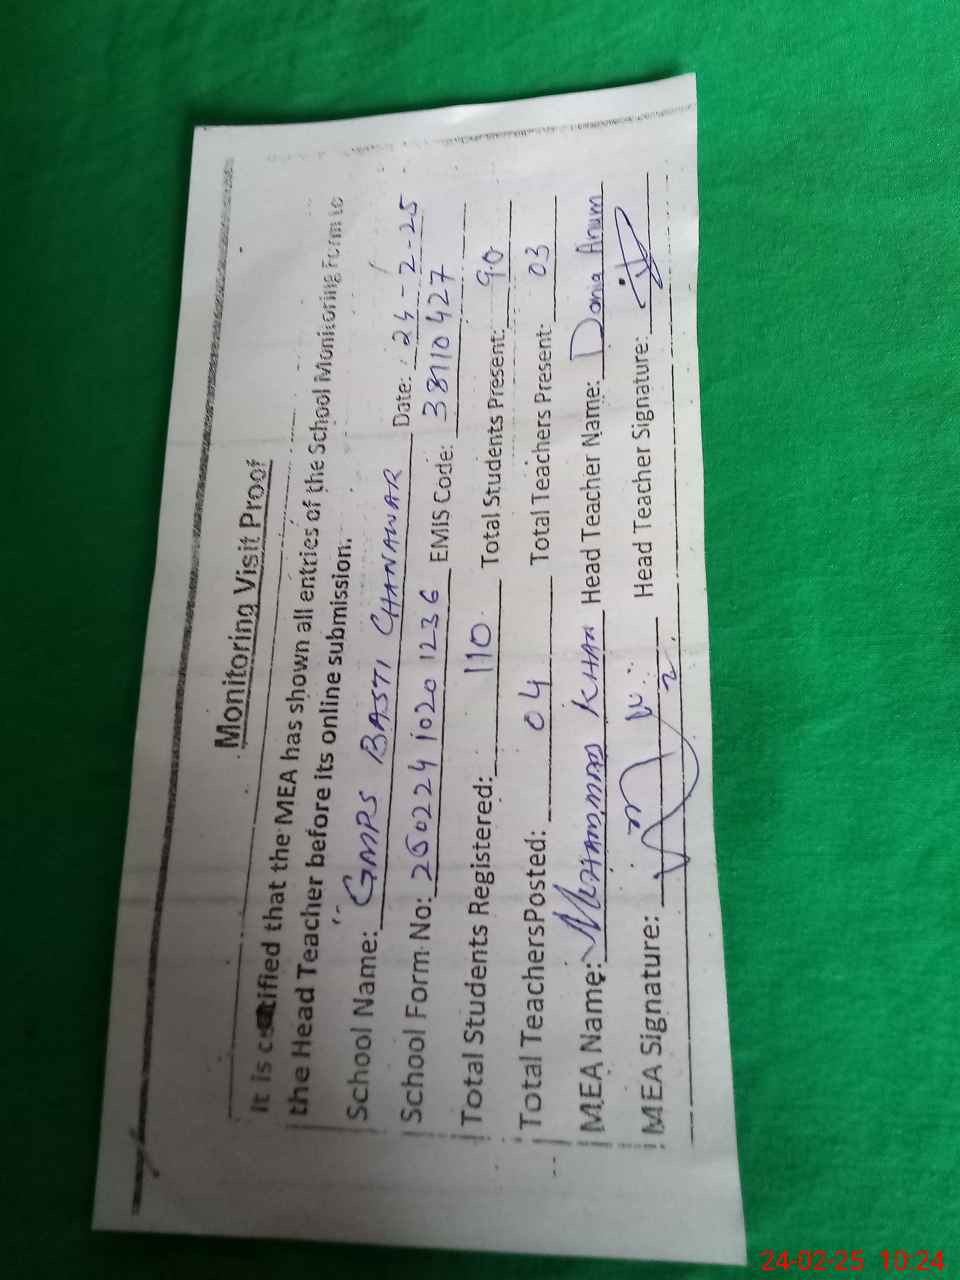 Monitoring Visit Proof
It is certified that the MEA has shown all entries of the School Monitoring Form to
the Head Teacher before its online submission.
School Name: GMPS BASTI CHANAWAR Date: 24-2-25
School Form No: 250224 1020 1236 EMIS Code: 33110427
Total Students Registered: 110 Total Students Present: 90
Total TeachersPosted: 04 Total Teachers Present: 03
MEA Name: MUHAMMAD KHAN Head Teacher Name: Dania Anum
MEA Signature: Head Teacher Signature:
24-02-25 10:24